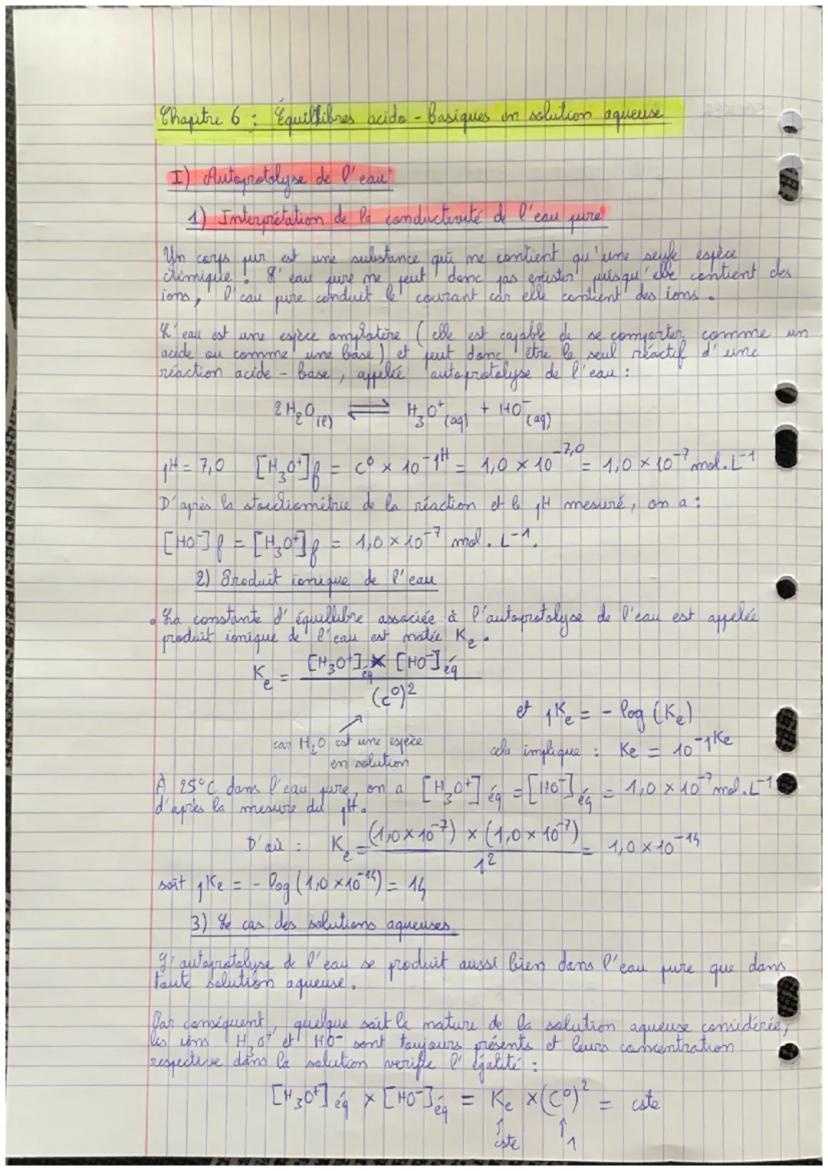 Chapitre 6 : Équilibres acido-basiques en solution aqueuse
I) Autoprotolyse de l'eau
1) Interprétation de la conductivité de l'eau pure
Un corps pur est une substance qui ne contient qu'une seule espèce
chimique. L'eau pure ne peut donc pas exister puisqu'elle contient des
ions, l'eau pure conduit le courant car elle contient des ions.
L'eau est une espèce amphotère (elle est capable de se comporter comme un
acide ou comme une base) et peut donc être le seul réactif d'une
réaction acide-base, appelée autoprotolyse de l'eau :
2 H₂O (l) ⇌ H₃O⁺ (aq) + HO⁻ (aq)
pH = 7,0 [H₃O⁺]f = C° × 10^-pH = 1,0 × 10^-7,0 = 1,0 × 10⁻⁷ mol.L⁻¹
D'après la stœchiométrie de la réaction et le pH mesuré, on a :
[HO⁻]f = [H₃O⁺]f = 1,0 × 10⁻⁷ mol.L⁻¹.
2) Produit ionique de l'eau
• La constante d'équilibre associée à l'autoprotolyse de l'eau est appelée
produit ionique de l'eau est notée Ke.
Ke = [H₃O⁺]éq × [HO⁻]éq / (c°)²
et pKe = - log (Ke)
car H₂O est une espèce
en solution
cela implique : Ke = 10^-pKe
À 25°C dans l'eau pure, on a [H₃O⁺]éq = [HO⁻]éq = 1,0 × 10⁻⁷ mol.L⁻¹
d'après la mesure du pH.
D'où : Ke = (1,0 × 10⁻⁷) × (1,0 × 10⁻⁷) / 1² = 1,0 × 10⁻¹⁴
soit pKe = - log (1,0 × 10⁻¹⁴) = 14
3) Le cas des solutions aqueuses
L'autoprotolyse de l'eau se produit aussi bien dans l'eau pure que dans
toute solution aqueuse.
Par conséquent, quelque soit la nature de la solution aqueuse considérée,
les ions H₃O⁺ et HO⁻ sont toujours présents et leurs concentration
respective dans la solution verifie l'égalité :
[H₃O⁺]éq × [HO⁻]éq = Ke × (C°)² = cste
↑ ↑
cste 1